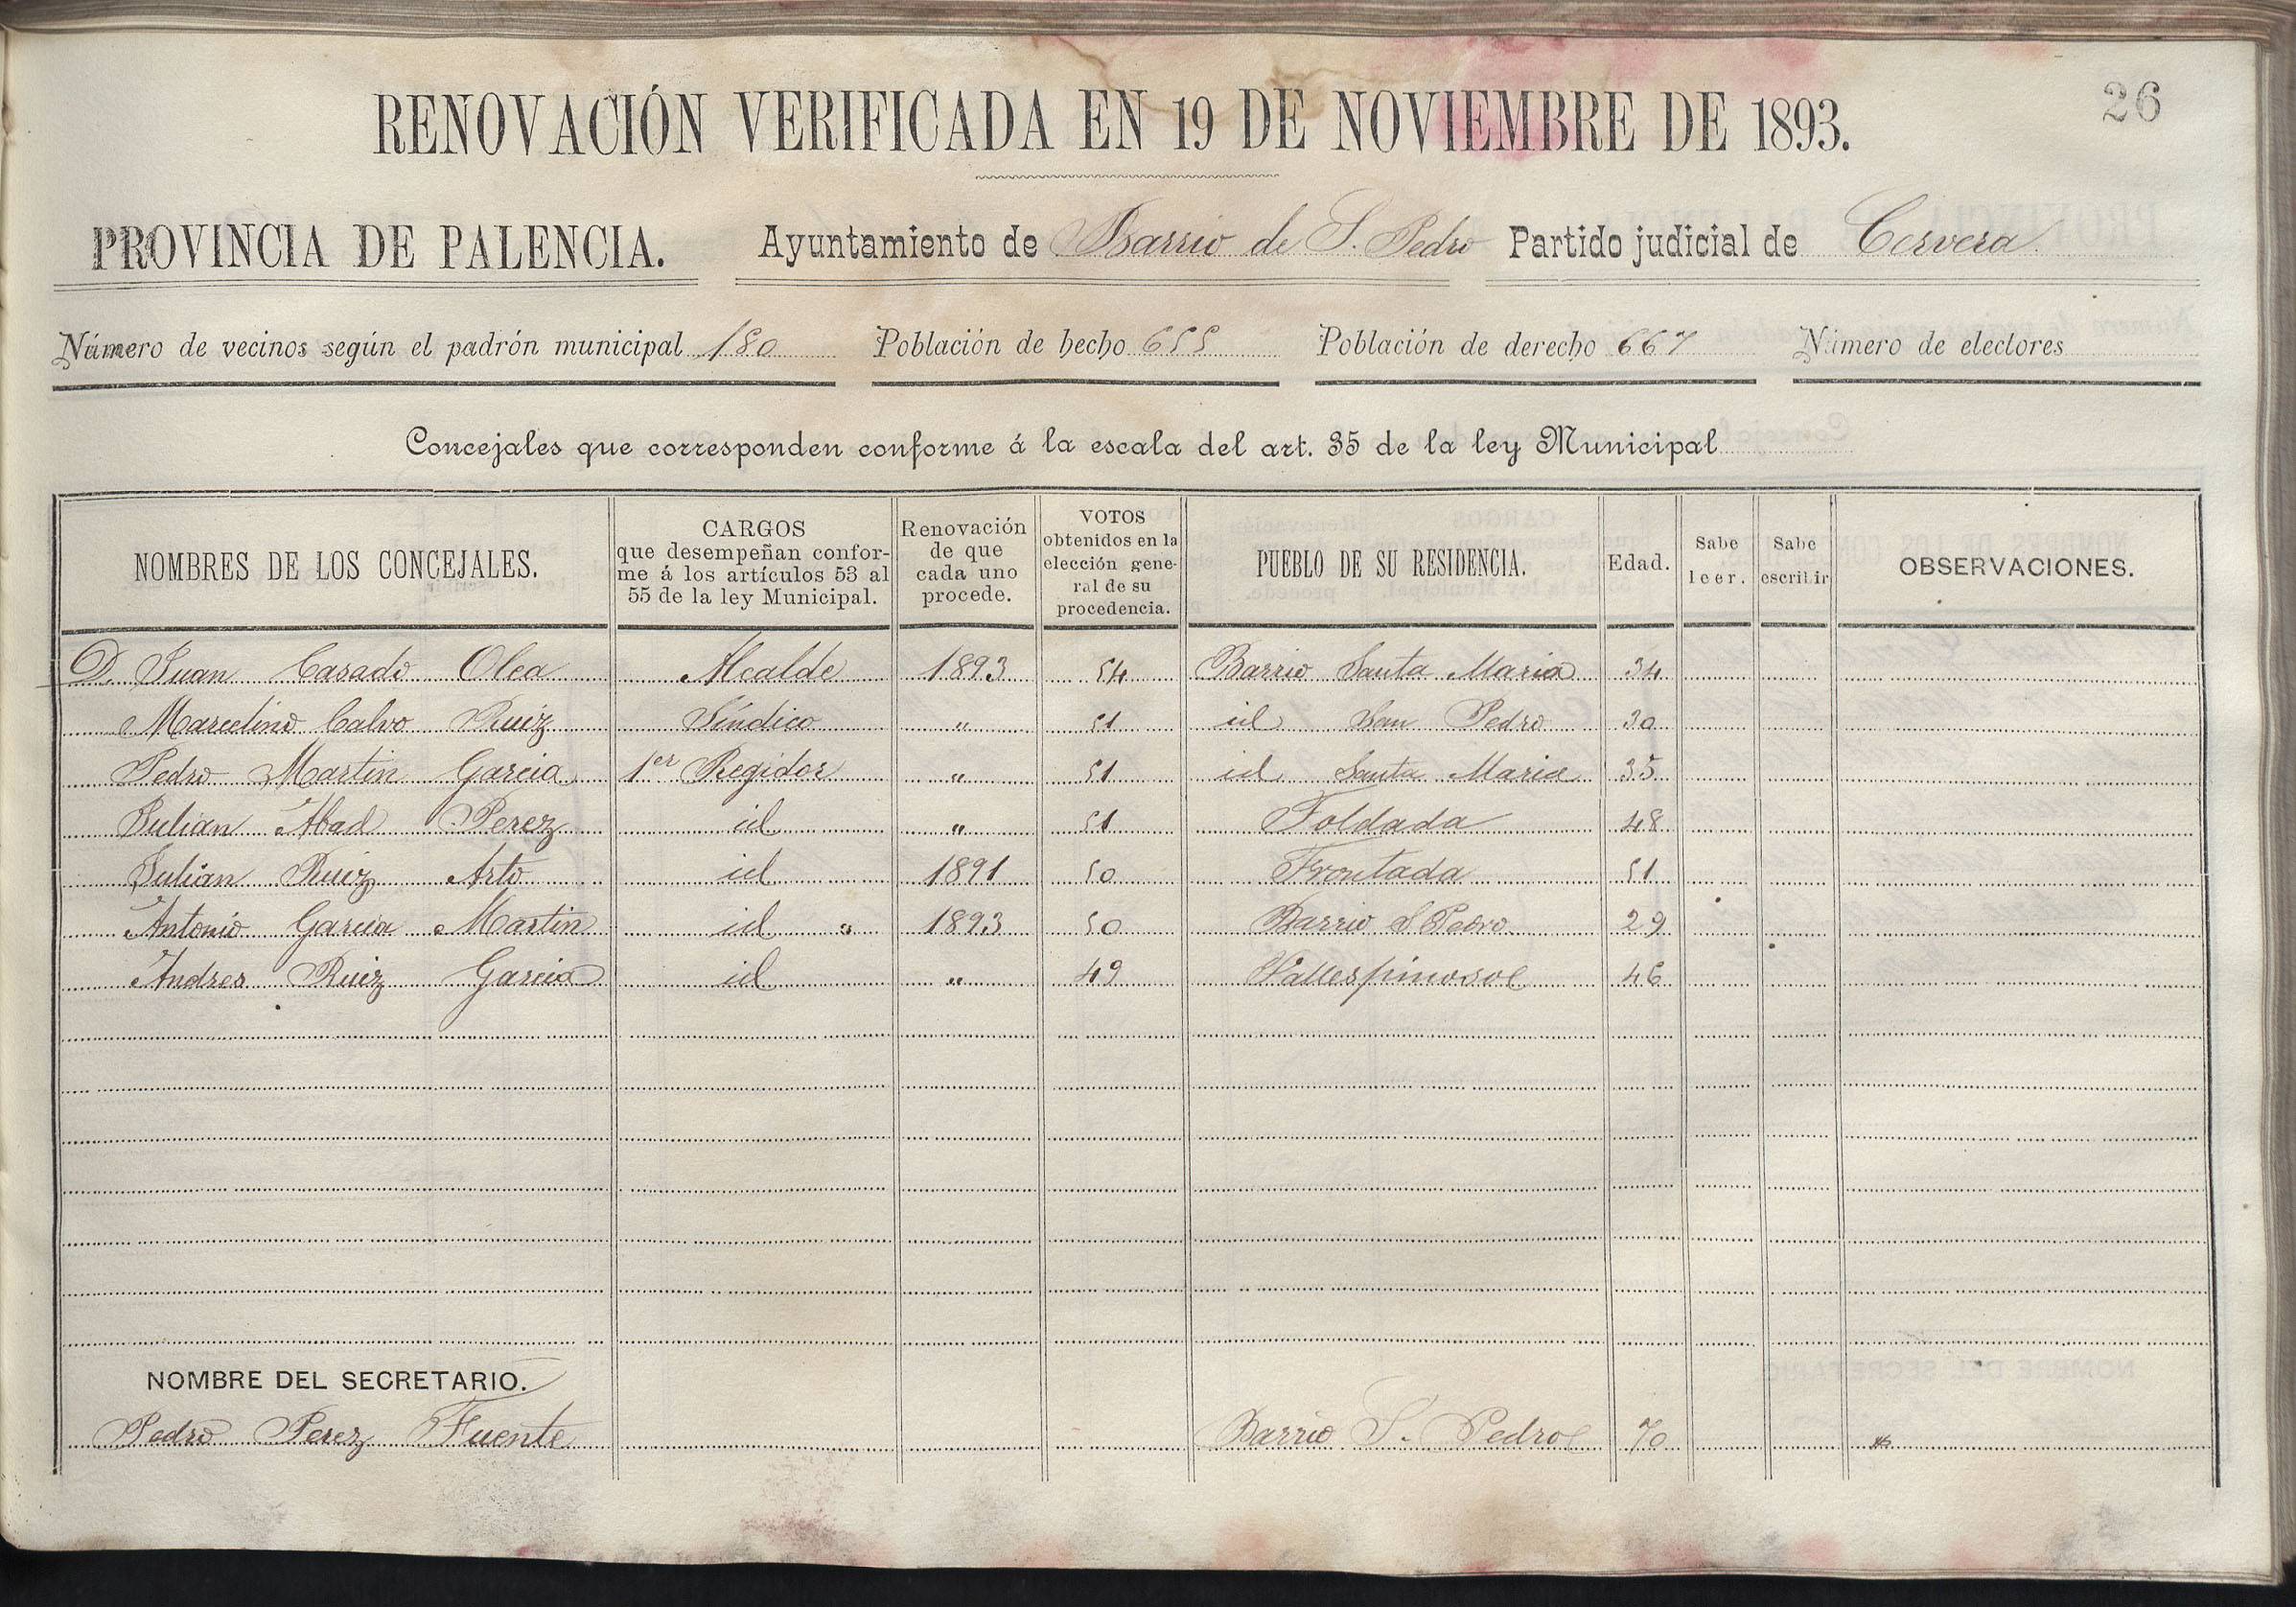 26
RENOVACIÓN VERIFICADA EN 19 DE NOVIEMBRE DE 1893.
PROVINCIA DE PALENCIA. Ayuntamiento de Barrio de S. Pedro Partido judicial de Cervera
Número de vecinos según el padrón municipal 180 Población de hecho 655 Población de derecho 667 Número de electores
Concejales que corresponden conforme á la escala del art. 35 de la ley Municipal
NOMBRES DE LOS CONCEJALES. CARGOS que desempeñan confor- me á los artículos 53 al 55 de la ley Municipal. Renovación de que cada uno procede. VOTOS obtenidos en la elección gene- ral de su procedencia. PUEBLO DE SU RESIDENCIA. Edad. Sabe leer. Sabe escribir OBSERVACIONES.
D. Juan Casado Olea Alcalde 1893 54 Barrio Santa Maria 34
Marcelino Calvo Ruiz Síndico " 51 id San Pedro 30
Pedro Martin Garcia 1er Regidor " 51 id Santa Maria 35
Julian Abad Perez id " 51 Foldada 48
Julian Ruiz Arto id 1891 50 Frontada 51
Antonio Garcia Martin id " 1893 50 Barrio S Pedro 29
Andres Ruiz Garcia id " 49 Vallespinoso 46
NOMBRE DEL SECRETARIO.
Pedro Perez Fuente Barrio S. Pedro 70